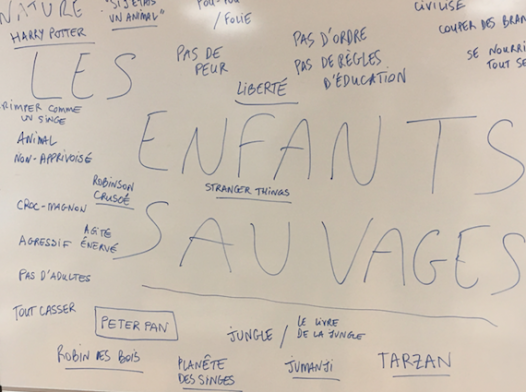 NATURE
"SI J'ÉTAIS
UN ANIMAL"
/ FOLIE
CIVILISÉ
HARRY POTTER
COUPER DES BRAN
PAS DE
PEUR
PAS D'ORDRE
PAS DE RÈGLES
D'ÉDUCATION
SE NOURRI
TOUT SE
LES
LIBERTÉ
RIMPER COMME
UN SINGE
ENFANTS
ANIMAL
NON-APPRIVOISÉ
ROBINSON
CRUSOÉ
STRANGER THINGS
CROC-MAGNON
SAUVAGES
AGRESSIF
AGITÉ
ÉNERVÉ
PAS D'ADULTES
TOUT CASSER
PETER PAN
JUNGLE /
LE LIVRE
DE LA JUNGLE
ROBIN DES BOIS
PLANÈTE
DES SINGES
JUMANJI
TARZAN